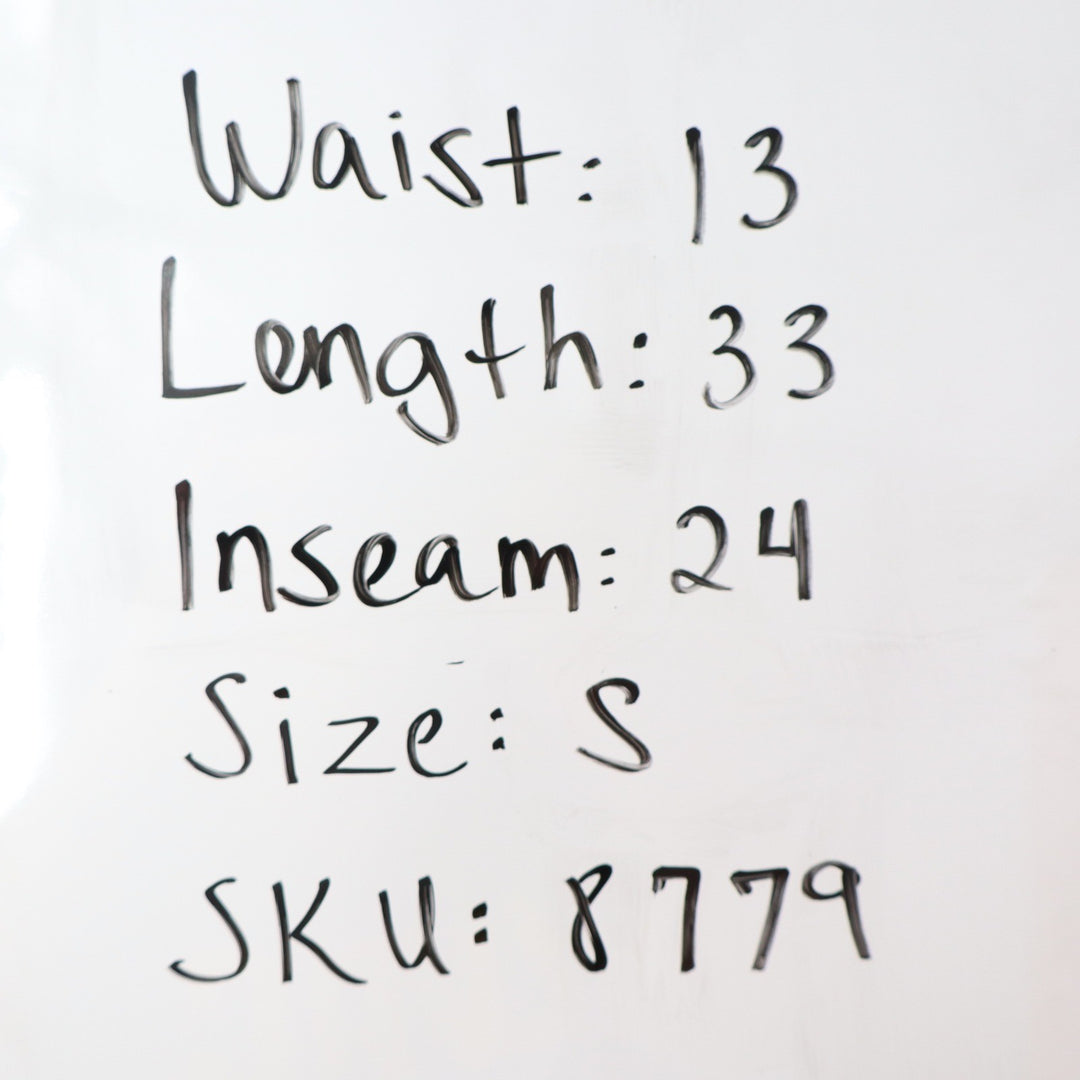 Waist: 13
Length: 33
Inseam: 24
Size: S
SKU: 8779